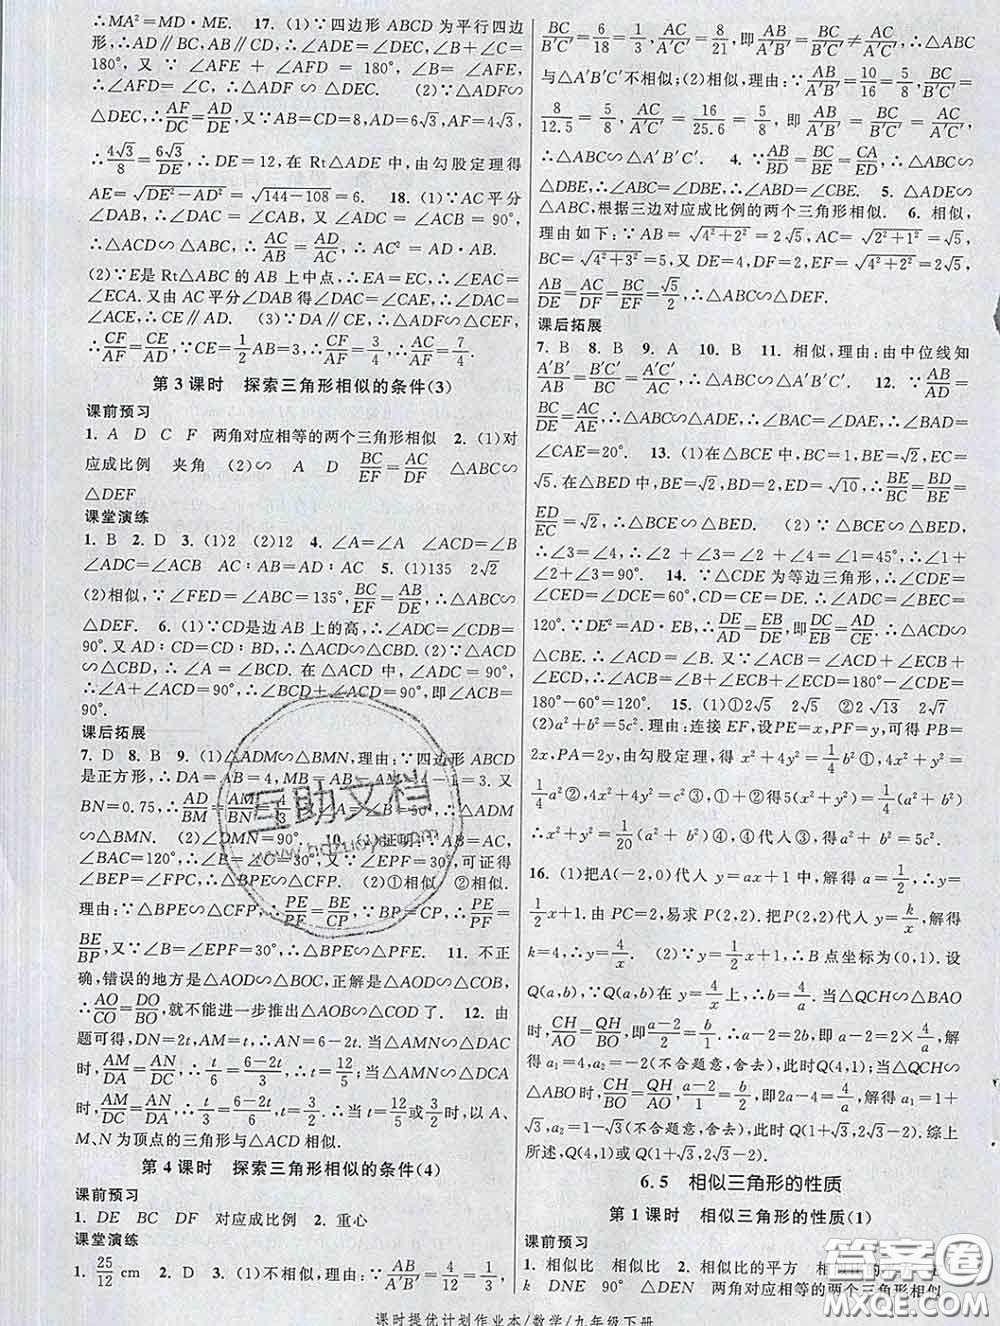 ∴MA²=MD·ME. 17. (1)∵四边形 ABCD 为平行四边
形,∴AD∥BC,AB∥CD,∴∠ADE=∠DEC,∠B+∠C=
180°,又∵∠AFE+∠AFD=180°,∠B=∠AFE,
∴∠AFD=∠C,∴△ADF∽△DEC. (2)∵△ADF∽
△DEC,∴AF/DC=AD/DE,又∵AB=CD=8,AD=6√3,AF=4√3,
∴4√3/8=6√3/DE,∴DE=12,在 Rt△ADE 中,由勾股定理得
AE=√(DE²-AD²)=√(144-108)=6. 18. (1)∵AC平分
∠DAB,∴∠DAC=∠CAB,又∠ADC=∠ACB=90°,
∴△ACD∽△ABC,∴AC/AB=AD/AC,∴AC²=AD·AB.
(2)∵E是Rt△ABC的 AB 上中点,∴EA=EC,∴∠EAC=
∠ECA.又由AC平分∠DAB得∠DAC=∠CAE,∴∠DAC=
∠ACE,∴CE∥AD. (3)∵DA∥CE,∴△AFD∽△CEF,
∴CF/AF=CE/AD,∵CE=1/2AB=3,∴CF/AF=3/4,∴AC/AF=7/4.
第 3 课时 探索三角形相似的条件(3)
课前预习
1. A D C F 两角对应相等的两个三角形相似 2. (1)对
应成比例 夹角 (2)∽ A D BC/EF=AC/DF △ABC∽
△DEF
课堂演练
1. B 2. D 3. (1)2 (2)12 4. ∠A=∠A ∠ADC=∠B
∠ADC=∠ACB AC∶AB=AD∶AC 5. (1)135 2√2
(2)相似,∵∠FED=∠ABC=135°,BC/EF=AB/DE,∴△ABC∽
△DEF. 6. (1)∵CD是边 AB 上的高,∴∠ADC=∠CDB=
90°.又AD∶CD=CD∶BD,∴△ACD∽△CBD. (2)∵△ACD
∽△CBD,∴∠A=∠BCD.在△ACD中,∠ADC=90°,
∴∠A+∠ACD=90°,∴∠BCD+∠ACD=90°,即∠ACB=
90°.
课后拓展
7. D 8. B 9. (1)△ADM∽△BMN,理由:∵四边形ABCD
是正方形,∴DA=AB=4,MB=AB-AM=4-1=3.又
BN=0.75,∴AD/BM=AM/BN=4/3
∽△BMN. (2)∠DMN=90°. 10. (1)证明:∵AB=AC,
∠BAC=120°,∴∠B=∠C=30°,又∵∠EPF=30°,可证得
∠BEP=∠FPC,∴△BPE∽△CFP. (2)①相似. ②相似.
理由:∵△BPE∽△CFP,∴PE/FP=BE/CP,∵BP=CP,∴PE/PF=
BE/BP,又∵∠B=∠EPF=30°,∴△BPE∽△PFE. 11. 不正
确,错误的地方是△AOD∽△BOC,正解是△AOD∽△COB,
∴AO/CO=DO/BO,就不能进一步推出△AOB∽△DOC. 12. 由
题可得,DN=2t,AM=t,∴AN=6-2t.当△AMN∽△DAC
时,AM/DA=AN/DC,∴t/6=(6-2t)/3,∴t=12/5;当△AMN∽△DCA
时,AM/DC=AN/DA,∴t/3=(6-2t)/6,∴t=3/2.∴当t=12/5或3/2时,以 A、
M、N 为顶点的三角形与△ACD 相似.
第 4 课时 探索三角形相似的条件(4)
课前预习
1. DE BC DF 对应成比例 2. 重心
课堂演练
1. 25/12 cm 2. D 3. (1)不相似,理由:∵AB/A′B′=4/12=1/3,
BC/B′C′=6/18=1/3,AC/A′C′=8/21,即AB/A′B′=BC/B′C′≠AC/A′C′,∴△ABC
与△A′B′C′不相似;(2)相似,理由:∵AB/A′B′=10/16=5/8,BC/B′C′=
8/12.5=5/8,AC/A′C′=16/25.6=5/8,即AB/A′B′=BC/B′C′=AC/A′C′,
∴△ABC∽△A′B′C′. 4. ∵AB/DB=BC/BE=CA/ED,∴△ABC∽
△DBE,∴∠ABC=∠DBE,∴∠ABD=∠CBE. 5. △ADE∽
△ABC,根据三边对应成比例的两个三角形相似. 6. 相似,
理由如下:∵AB=√(4²+2²)=2√5,AC=√(2²+1²)=√5,
BC=√(4²+3²)=5,又DE=4,DF=2,EF=√(4²+2²)=2√5,
∴AB/DE=AC/DF=BC/EF=√5/2,∴△ABC∽△DEF.
课后拓展
7. B 8. B 9. A 10. B 11. 相似,理由:由中位线知
A′B′/AB=B′C′/BC=A′C′/AC,∴△ABC∽△A′B′C′. 12. ∵AB/AD=
BC/DE=AC/AE,∴△ABC∽△ADE,∴∠BAC=∠DAE,∴∠BAD=
∠CAE=20°. 13. (1)在△BCE中,∵BC=1,CE=√5,BE
=√2,在△BED中,∵BE=√2,BD=2,ED=√10,∴BE/BC=BD/BE=
ED/EC=√2,∴△BCE∽△BED. (2)∵△BCE∽△BED,
∴∠3=∠4,∴∠2+∠3=∠2+∠4=∠1=45°,∴∠1+
∠2+∠3=90°. 14. ∵△CDE为等边三角形,∴∠CDE=
∠CED=∠DCE=60°,CD=DE=CE,∴∠ADC=∠BEC=
120°.∵DE²=AD·EB,∴DE/AD=EB/DE,即DC/AD=EB/CE.∴△ACD∽
△CBE.∴∠ACD=∠B.又∵∠ACB=∠ACD+∠ECB+
∠ECD,∴∠ACB=∠B+∠ECB+∠ECD=180°-∠CED=
180°-60°=120°. 15. (1)①2√5 2√5 ②2√13 2√7
(2)a²+b²=5c².理由:连接EF,设PE=x,PF=y,可得PB=
2x,PA=2y,由勾股定理,得x²+4y²=1/4b²①,4x²+y²=
1/4a²②,4x²+4y²=c²③,①+②得5(x²+y²)=1/4(a²+b²),
∴x²+y²=1/20(a²+b²)④,④代入③,得a²+b²=5c².
16. (1)把A(-2,0)代入 y=ax+1 中,解得 a=1/2,∴y=
1/2x+1.由 PC=2,易求P(2,2).把P(2,2)代入 y=k/x,解得
k=4,∴y=4/x. (2)∵y=1/2x+1,∴B点坐标为(0,1).设
Q(a,b),∵Q(a,b)在 y=4/x 上,∴b=4/a.当△QCH∽△BAO
时,CH/AO=QH/BO,即(a-2)/2=b/1.∴a-2=2b,即 a-2=2×4/a,解
得a₁=4,a₂=-2(不合题意,舍去),∴Q(4,1);当△QCH∽
△ABO时,CH/BO=QH/AO,即(a-2)/1=b/2,即2a-4=4/a,解得 a₁=1+
√3,a₂=1-√3(不合题意,舍去),∴Q(1+√3,2√3-2).综上
所述,Q(4,1)或Q(1+√3,2√3-2).
6.5 相似三角形的性质
第 1 课时 相似三角形的性质(1)
课前预习
1. 相似比 相似比 相似比的平方 相似比的
k DNE 90° △DEN 两角对应相等的两个三角形相似
课时提优计划作业本/数学/九年级下册
互助文档
答案圈
MXQE.COM